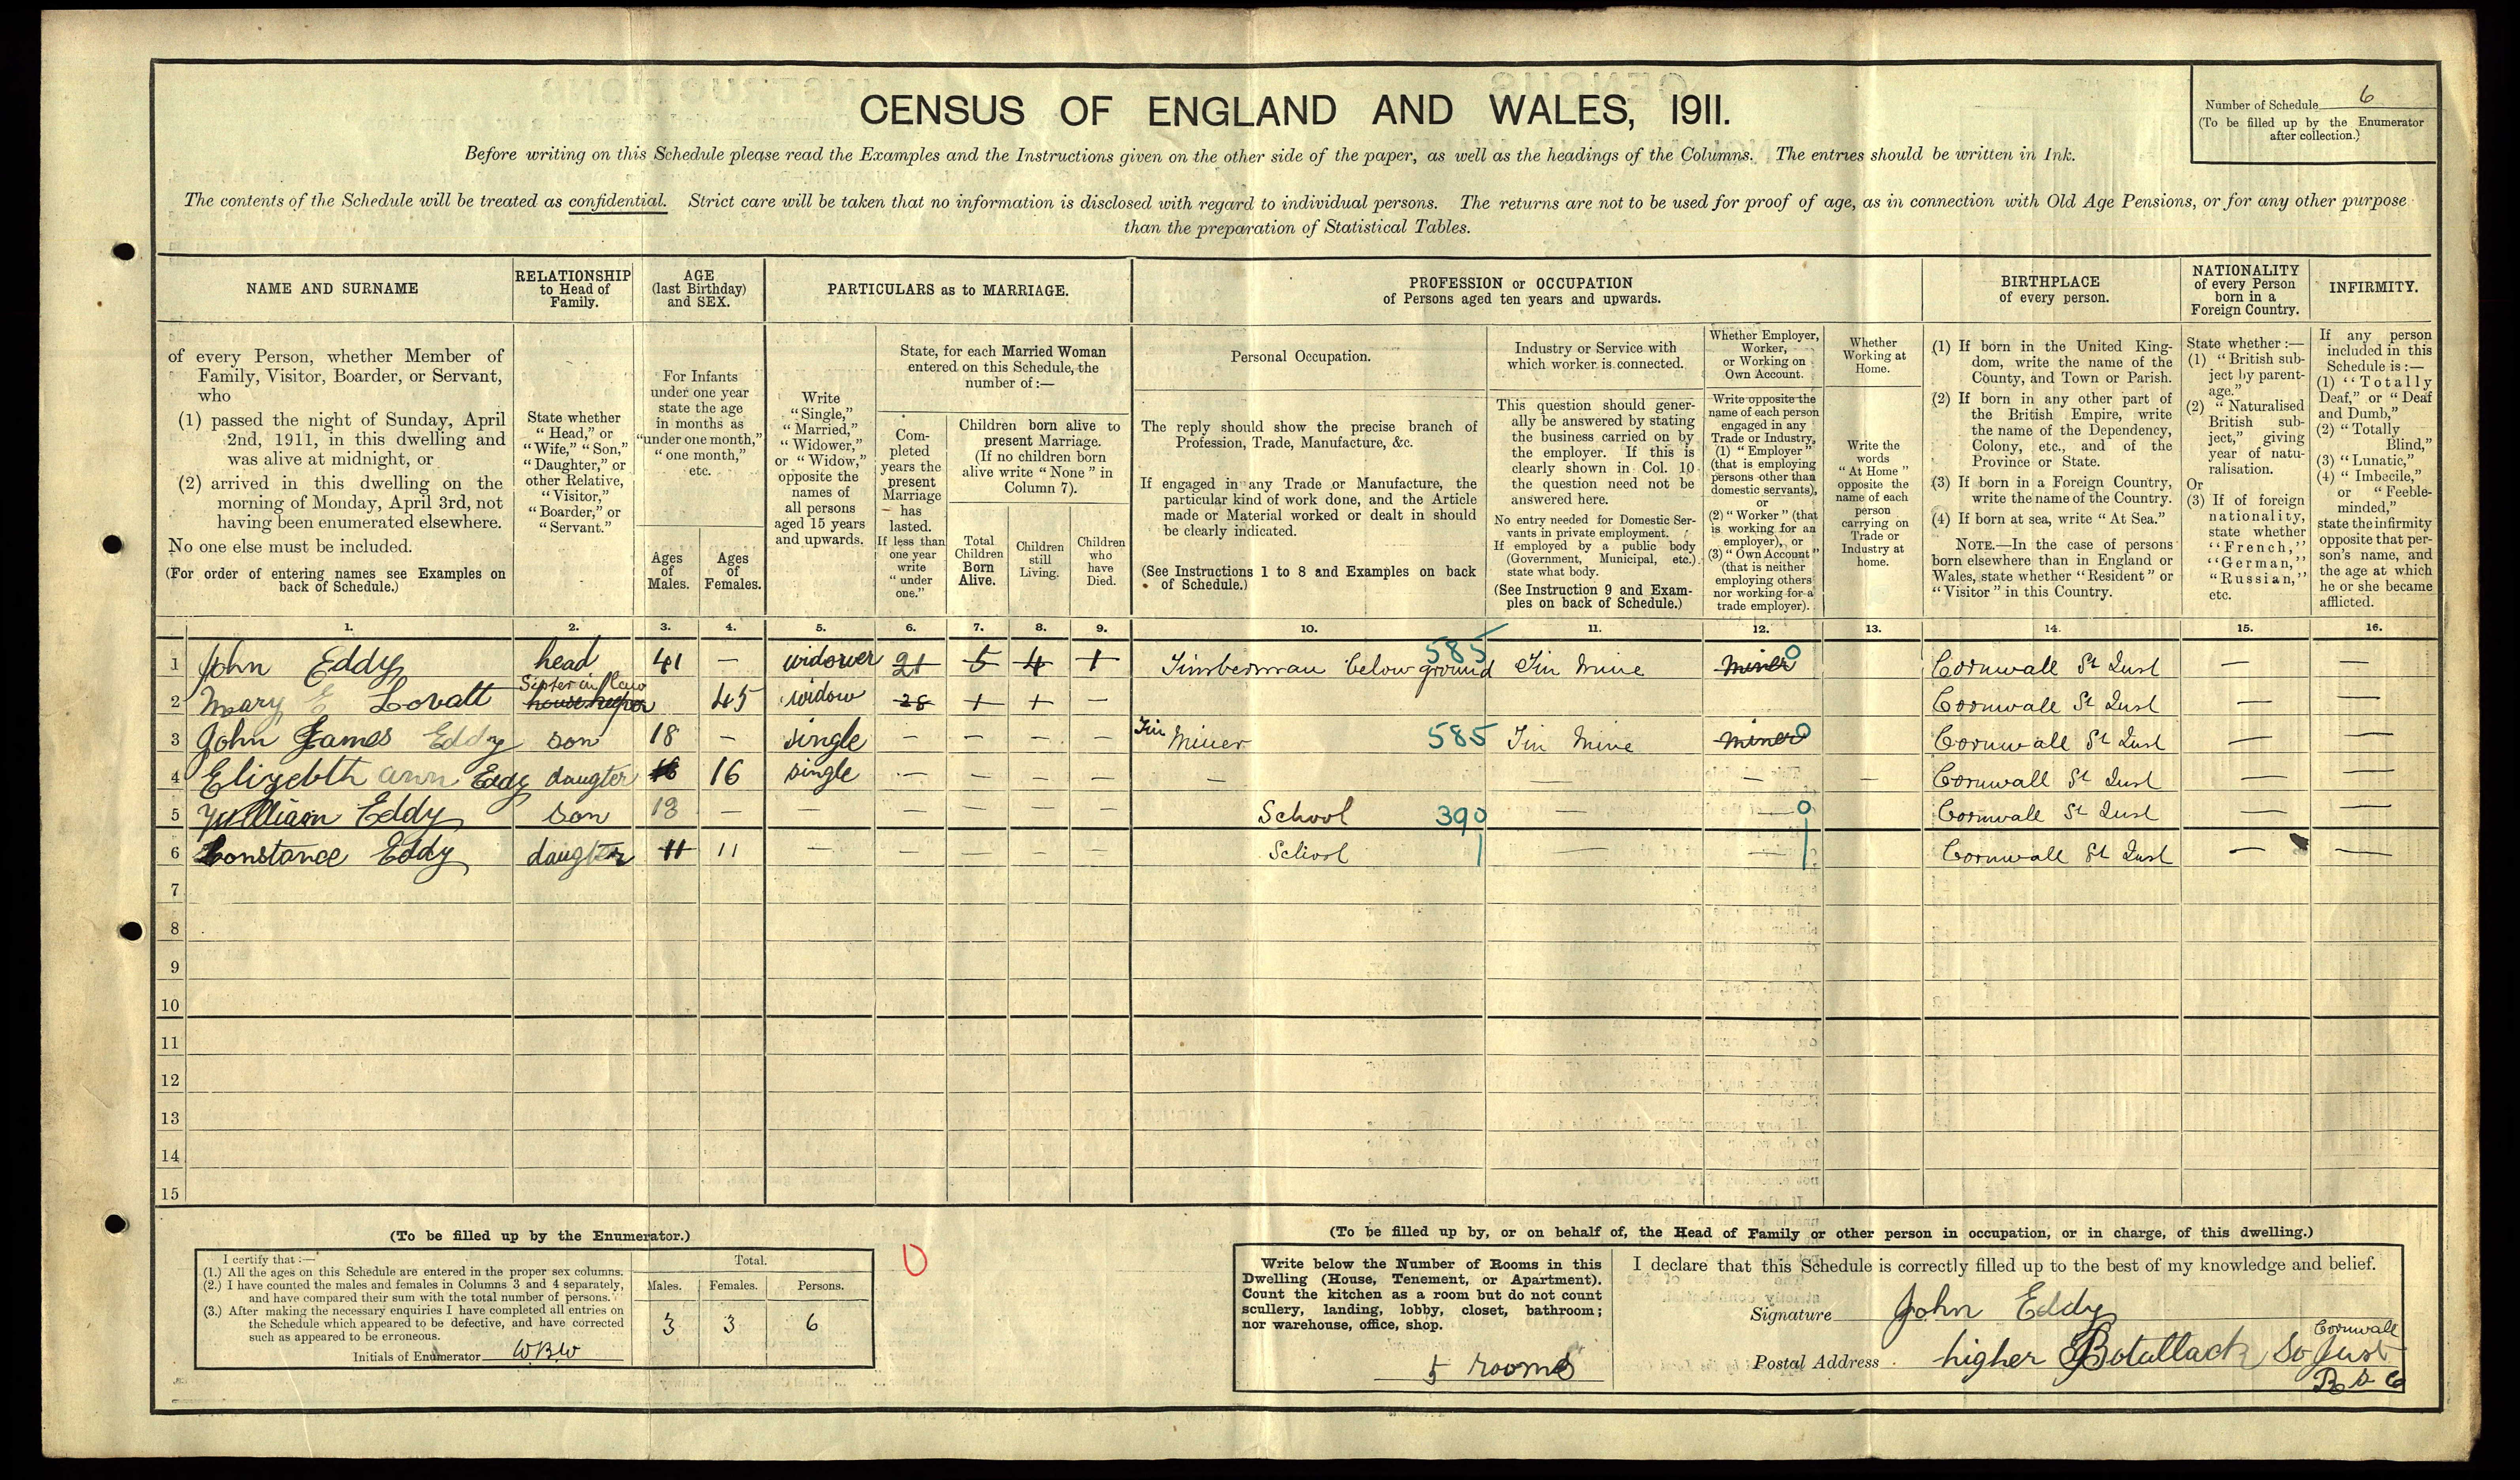 CENSUS OF ENGLAND AND WALES, 1911.
Number of Schedule 6
(To be filled up by the Enumerator
after collection.)
Before writing on this Schedule please read the Examples and the Instructions given on the other side of the paper, as well as the headings of the Columns. The entries should be written in Ink.
The contents of the Schedule will be treated as confidential. Strict care will be taken that no information is disclosed with regard to individual persons. The returns are not to be used for proof of age, as in connection with Old Age Pensions, or for any other purpose
than the preparation of Statistical Tables.
NAME AND SURNAME
of every Person, whether Member of
Family, Visitor, Boarder, or Servant,
who
(1) passed the night of Sunday, April
2nd, 1911, in this dwelling and
was alive at midnight, or
(2) arrived in this dwelling on the
morning of Monday, April 3rd, not
having been enumerated elsewhere.
No one else must be included.
(For order of entering names see Examples on
back of Schedule.)
RELATIONSHIP
to Head of
Family.
State whether
"Head," or
"Wife," "Son,"
"Daughter," or
other Relative,
"Visitor,"
"Boarder," or
"Servant."
AGE
(last Birthday)
and SEX.
For Infants
under one year
state the age
in months as
"under one month,"
"one month,"
etc.
Ages
of
Males.
Ages
of
Females.
PARTICULARS as to MARRIAGE.
Write
"Single,"
"Married,"
"Widower,"
or "Widow,"
opposite the
names of
all persons
aged 15 years
and upwards.
State, for each Married Woman
entered on this Schedule, the
number of:—
Com-
pleted
years the
present
Marriage
has
lasted.
If less than
one year
write
"under
one."
Children born alive to
present Marriage.
(If no children born
alive write "None" in
Column 7).
Total
Children
Born
Alive.
Children
still
Living.
Children
who
have
Died.
PROFESSION or OCCUPATION
of Persons aged ten years and upwards.
Personal Occupation.
The reply should show the precise branch of
Profession, Trade, Manufacture, &c.
If engaged in any Trade or Manufacture, the
particular kind of work done, and the Article
made or Material worked or dealt in should
be clearly indicated.
(See Instructions 1 to 8 and Examples on back
of Schedule.)
Industry or Service with
which worker is connected.
This question should gener-
ally be answered by stating
the business carried on by
the employer. If this is
clearly shown in Col. 10
the question need not be
answered here.
No entry needed for Domestic Ser-
vants in private employment.
If employed by a public body
(Government, Municipal, etc.)
state what body.
(See Instruction 9 and Exam-
ples on back of Schedule.)
Whether Employer,
Worker,
or Working on
Own Account.
Write opposite the
name of each person
engaged in any
Trade or Industry,
(1) "Employer"
(that is employing
persons other than
domestic servants),
or
(2) "Worker" (that
is working for an
employer), or
(3) "Own Account"
(that is neither
employing others
nor working for a
trade employer).
Whether
Working at
Home.
Write the
words
"At Home"
opposite the
name of each
person
carrying on
Trade or
Industry at
home.
BIRTHPLACE
of every person.
(1) If born in the United King-
dom, write the name of the
County, and Town or Parish.
(2) If born in any other part of
the British Empire, write
the name of the Dependency,
Colony, etc., and of the
Province or State.
(3) If born in a Foreign Country,
write the name of the Country.
(4) If born at sea, write "At Sea."
NOTE.—In the case of persons
born elsewhere than in England or
Wales, state whether "Resident" or
"Visitor" in this Country.
NATIONALITY
of every Person
born in a
Foreign Country.
State whether:—
(1) "British sub-
ject by parent-
age."
(2) "Naturalised
British sub-
ject," giving
year of natu-
ralisation.
Or
(3) If of foreign
nationality,
state whether
"French,"
"German,"
"Russian,"
etc.
INFIRMITY.
If any person
included in this
Schedule is:—
(1) "Totally
Deaf," or "Deaf
and Dumb,"
(2) "Totally
Blind,"
(3) "Lunatic,"
(4) "Imbecile,"
or "Feeble-
minded,"
state the infirmity
opposite that per-
son's name, and
the age at which
he or she became
afflicted.
1. 2. 3. 4. 5. 6. 7. 8. 9. 10. 11. 12. 13. 14. 15. 16.
1 John Eddy head 41 — widower 21 5 4 1 Timberman below ground 585 Tin Mine miner 0 Cornwall St Just — —
2 Mary E Lovatt Sister in law house keeper 45 widow 28 1 1 — Cornwall St Just — —
3 John James Eddy son 18 — single — — — — Tin Miner 585 Tin Mine miner 0 Cornwall St Just — —
4 Elizebth ann Eddy daugter 16 16 single — — — — — — — — Cornwall St Just — —
5 William Eddy son 13 — — — — — — School 390 — — 0 Cornwall St Just — —
6 Constance Eddy daugter 11 11 — — — — — School — — Cornwall St Just — —
7
8
9
10
11
12
13
14
15
(To be filled up by the Enumerator.)
I certify that:—
(1.) All the ages on this Schedule are entered in the proper sex columns.
(2.) I have counted the males and females in Columns 3 and 4 separately,
and have compared their sum with the total number of persons.
(3.) After making the necessary enquiries I have completed all entries on
the Schedule which appeared to be defective, and have corrected
such as appeared to be erroneous.
Initials of Enumerator WBW
Total.
Males. Females. Persons.
3 3 6
0
(To be filled up by, or on behalf of, the Head of Family or other person in occupation, or in charge, of this dwelling.)
Write below the Number of Rooms in this
Dwelling (House, Tenement, or Apartment).
Count the kitchen as a room but do not count
scullery, landing, lobby, closet, bathroom;
nor warehouse, office, shop.
5 rooms
I declare that this Schedule is correctly filled up to the best of my knowledge and belief.
Signature John Eddy
Cornwall
Postal Address higher Botallack So Just